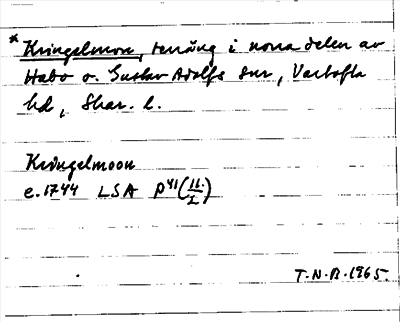 * Kringelmon, terräng i norra delen av
Habo o. Gustav Adolfs snr, Vartofta
hd, Skar. l.
Kringelmoon
e. 1744 LSA P41 (11:1)
T.N.A. 1965.